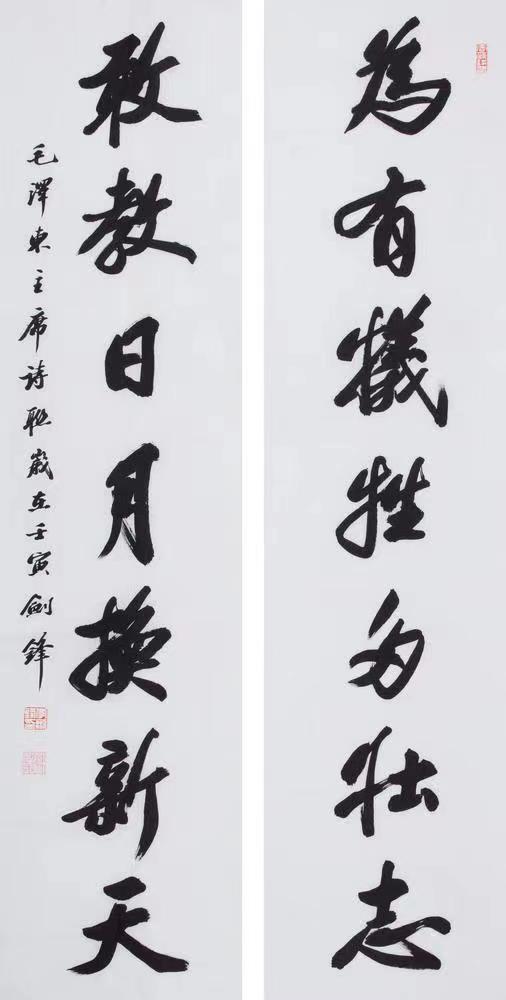 為有犠牲多壮志
敢教日月換新天
毛澤東主席詩聯歲在壬寅劍鋒